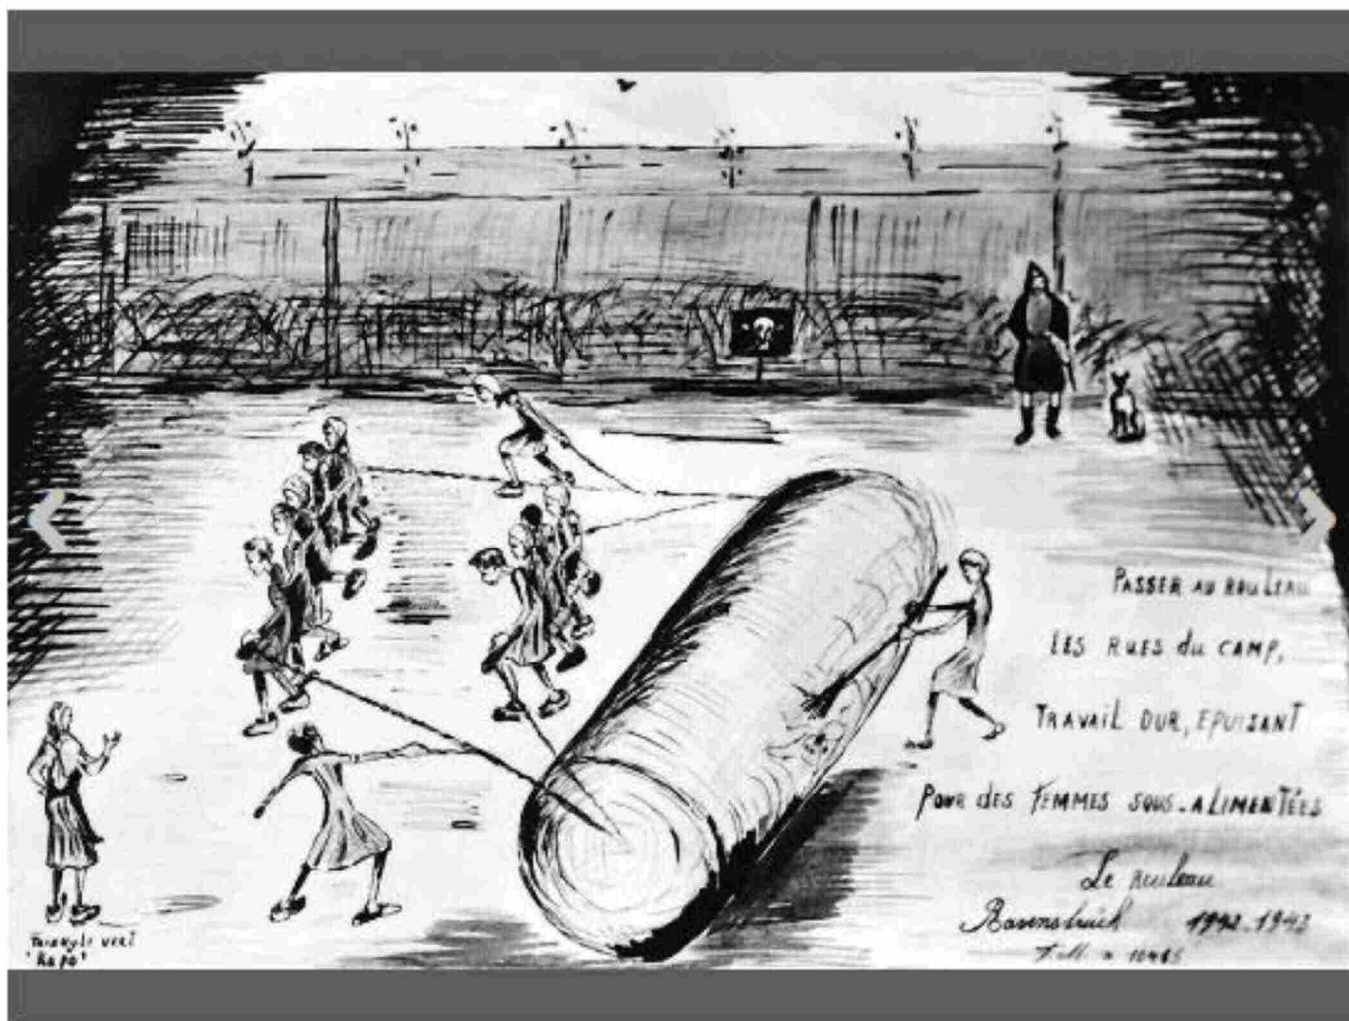 PASSER AU ROULEAU
LES RUES du CAMP,
TRAVAIL DUR, EPUISANT
POUR des FEMMES SOUS-ALIMENTÉES
Le Rouleau
Ravensbrück 1942-1943
TRIANGLE VERT
"Kapo"